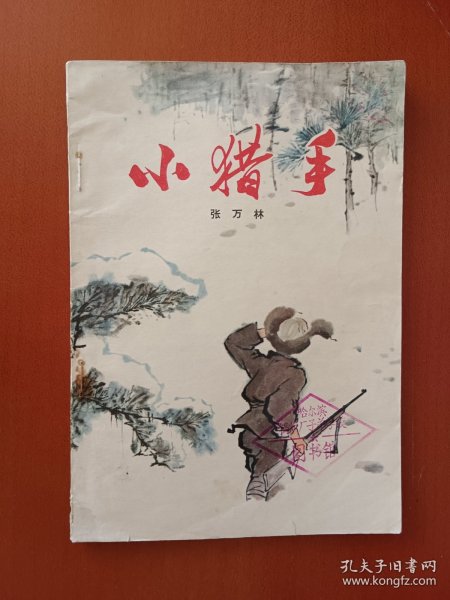 小猎手
张万林
哈尔滨
图书馆
孔夫子旧书网
www.kongfz.com